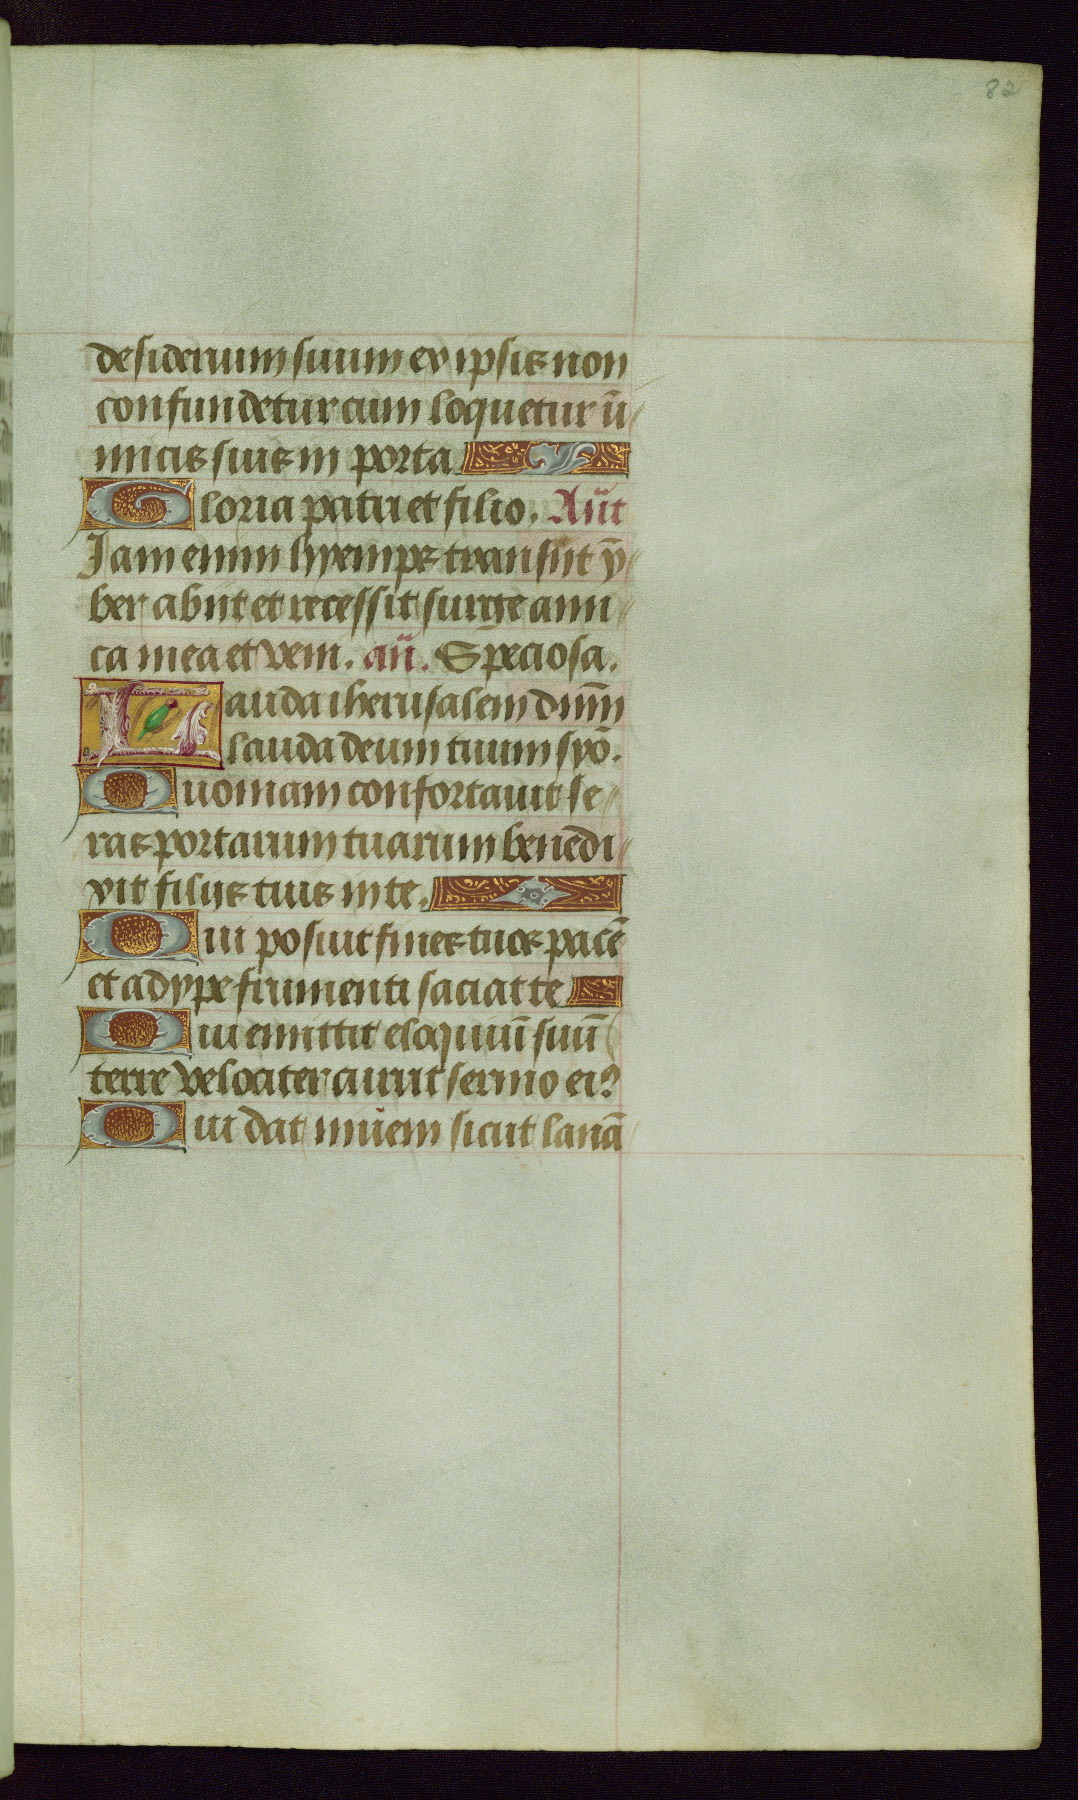 82
desiderium suum ex ipsis non
confundetur cum loquetur ī
imicis suis in porta
Gloria patri et filio. Añt
Jam enim hyemps transiit ȳ
ber abiit et recessit surge ami
ca mea et veni. añ. Speciosa.
Lauda iherusalem dn̄m
lauda deum tuum syō.
Quoniam confortavit se
ras portarum tuarum benedi
xit filijs tuis in te.
Qui posuit fines tuos pacē
et adype frumenti saciat te
Qui emittit eloquiū suū
terre velociter currit sermo eiꝰ
Qui dat nivem sicut lanā